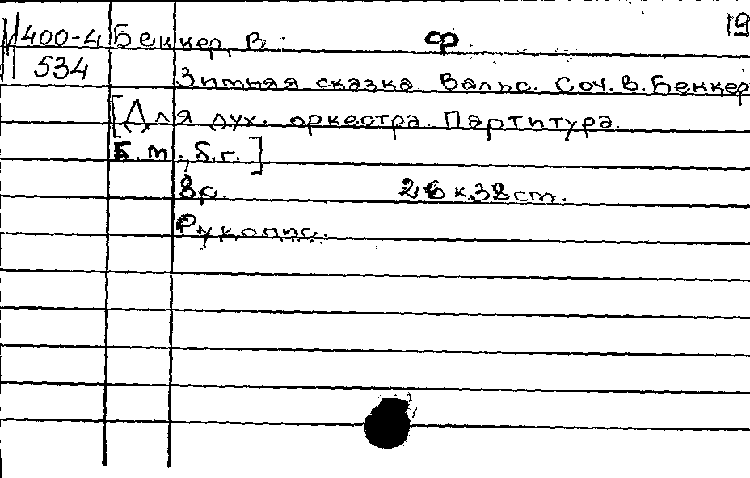 М400-4 Беккер, В. ср. 19
534 Зимняя сказка Вальс. Соч. В. Беккер
[Для дух. оркестра. Партитура.
Б.м., б.г.]
8р. 26 х 32 ст.
Рукопис.